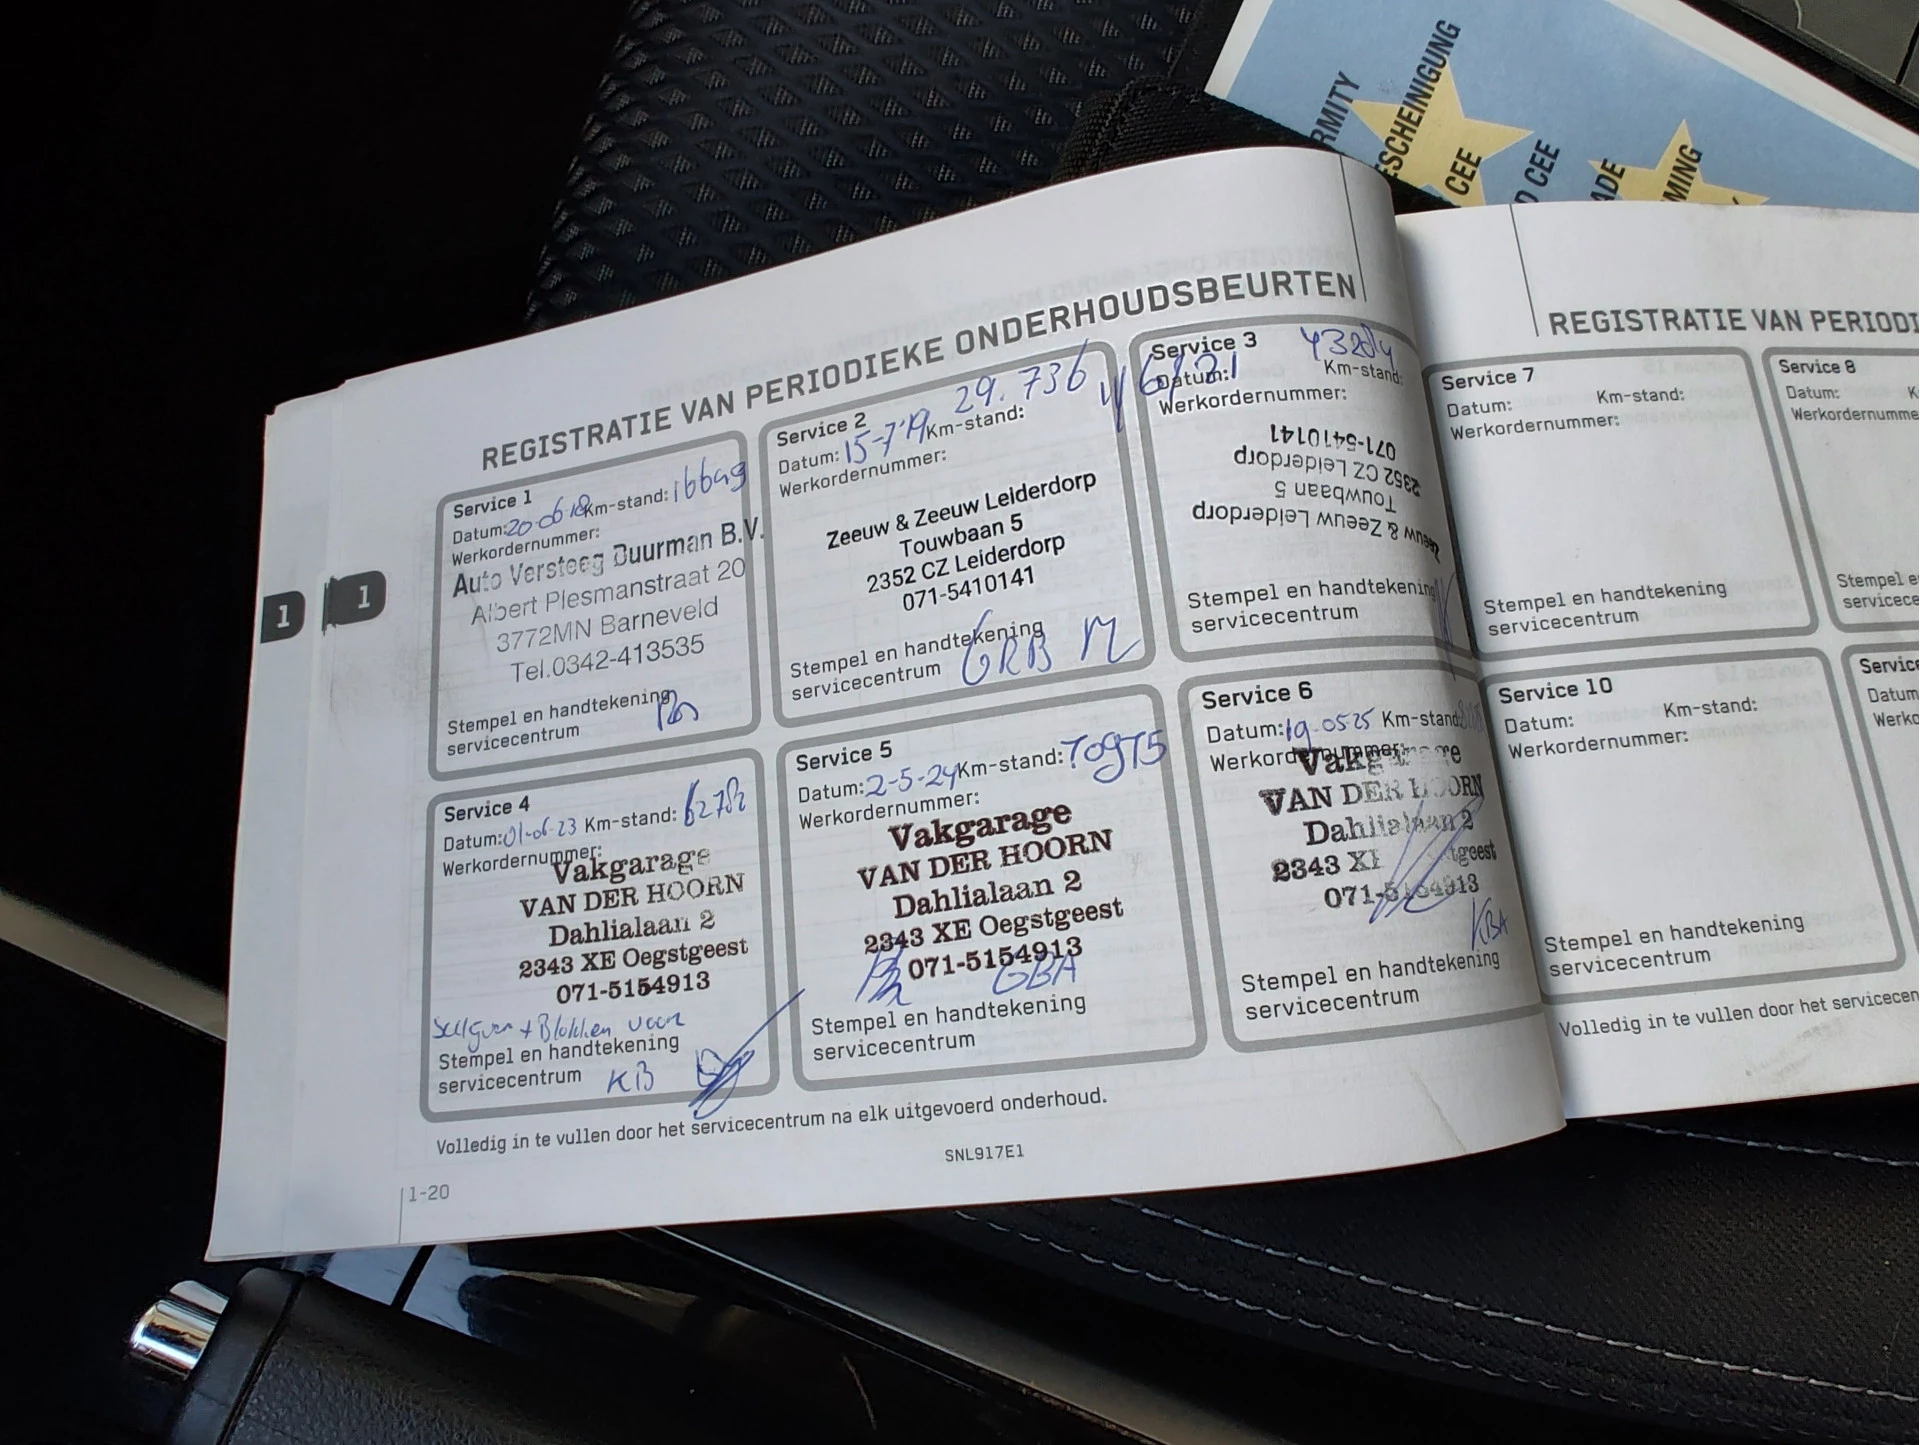 RMITY
ESCHEINIGUNG
CEE
D CEE
ADE
MING
REGISTRATIE VAN PERIODIEKE ONDERHOUDSBEURTEN
1
1
Service 1
Datum: 20-06-18 Km-stand: 16649
Werkordernummer:
Auto Versteeg Buurman B.V.
Albert Plesmanstraat 20
3772MN Barneveld
Tel.0342-413535
Stempel en handtekening
servicecentrum
Service 2
Datum: 15-7-19 Km-stand: 29.736
Werkordernummer:
Zeeuw & Zeeuw Leiderdorp
Touwbaan 5
2352 CZ Leiderdorp
071-5410141
Stempel en handtekening
servicecentrum GRB
Service 3
Datum: Km-stand:
Werkordernummer:
Zeeuw & Zeeuw Leiderdorp
Touwbaan 5
2352 CZ Leiderdorp
071-5410141
Stempel en handtekening
servicecentrum
Service 4
Datum: 01-06-23 Km-stand:
Werkordernummer:
Vakgarage
VAN DER HOORN
Dahlialaan 2
2343 XE Oegstgeest
071-5154913
+ Blokken voor
Stempel en handtekening
servicecentrum KB
Service 5
Datum: 2-5-24 Km-stand:
Werkordernummer:
Vakgarage
VAN DER HOORN
Dahlialaan 2
2343 XE Oegstgeest
071-5154913
GBA
Stempel en handtekening
servicecentrum
Service 6
Datum: 19-05-25 Km-stand:
Werkordernummer:
Vakgarage
VAN DER HOORN
Dahlialaan 2
2343 XE Oegstgeest
071-5154913
KBA
Stempel en handtekening
servicecentrum
Volledig in te vullen door het servicecentrum na elk uitgevoerd onderhoud.
SNL917E1
1-20
REGISTRATIE VAN PERIODI
Service 7
Datum: Km-stand:
Werkordernummer:
Stempel en handtekening
servicecentrum
Service 8
Datum: K
Werkordernumme
Stempel e
servicece
Service 10
Datum: Km-stand:
Werkordernummer:
Stempel en handtekening
servicecentrum
Service
Datum
Werko
Volledig in te vullen door het servicecen